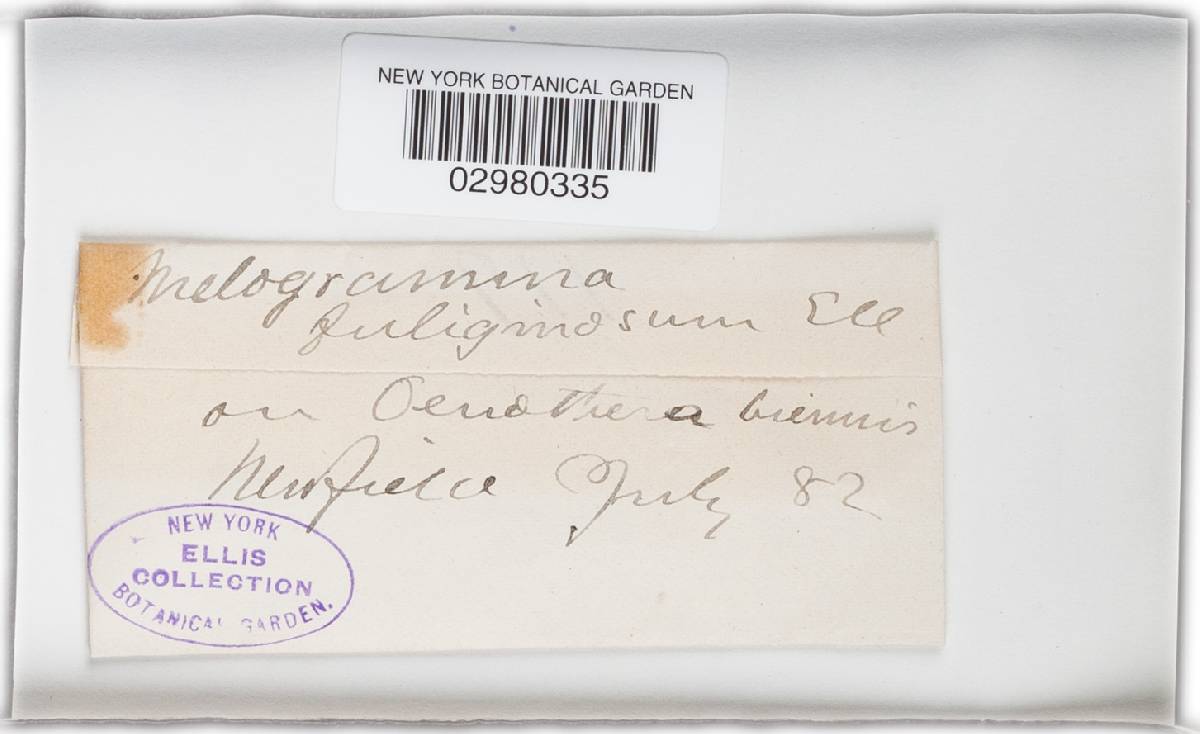 NEW YORK BOTANICAL GARDEN
02980335
Melogramma
fuliginosum Ell
on Oenothera biennis
Newfield July 82
NEW YORK
ELLIS
COLLECTION
BOTANICAL GARDEN.